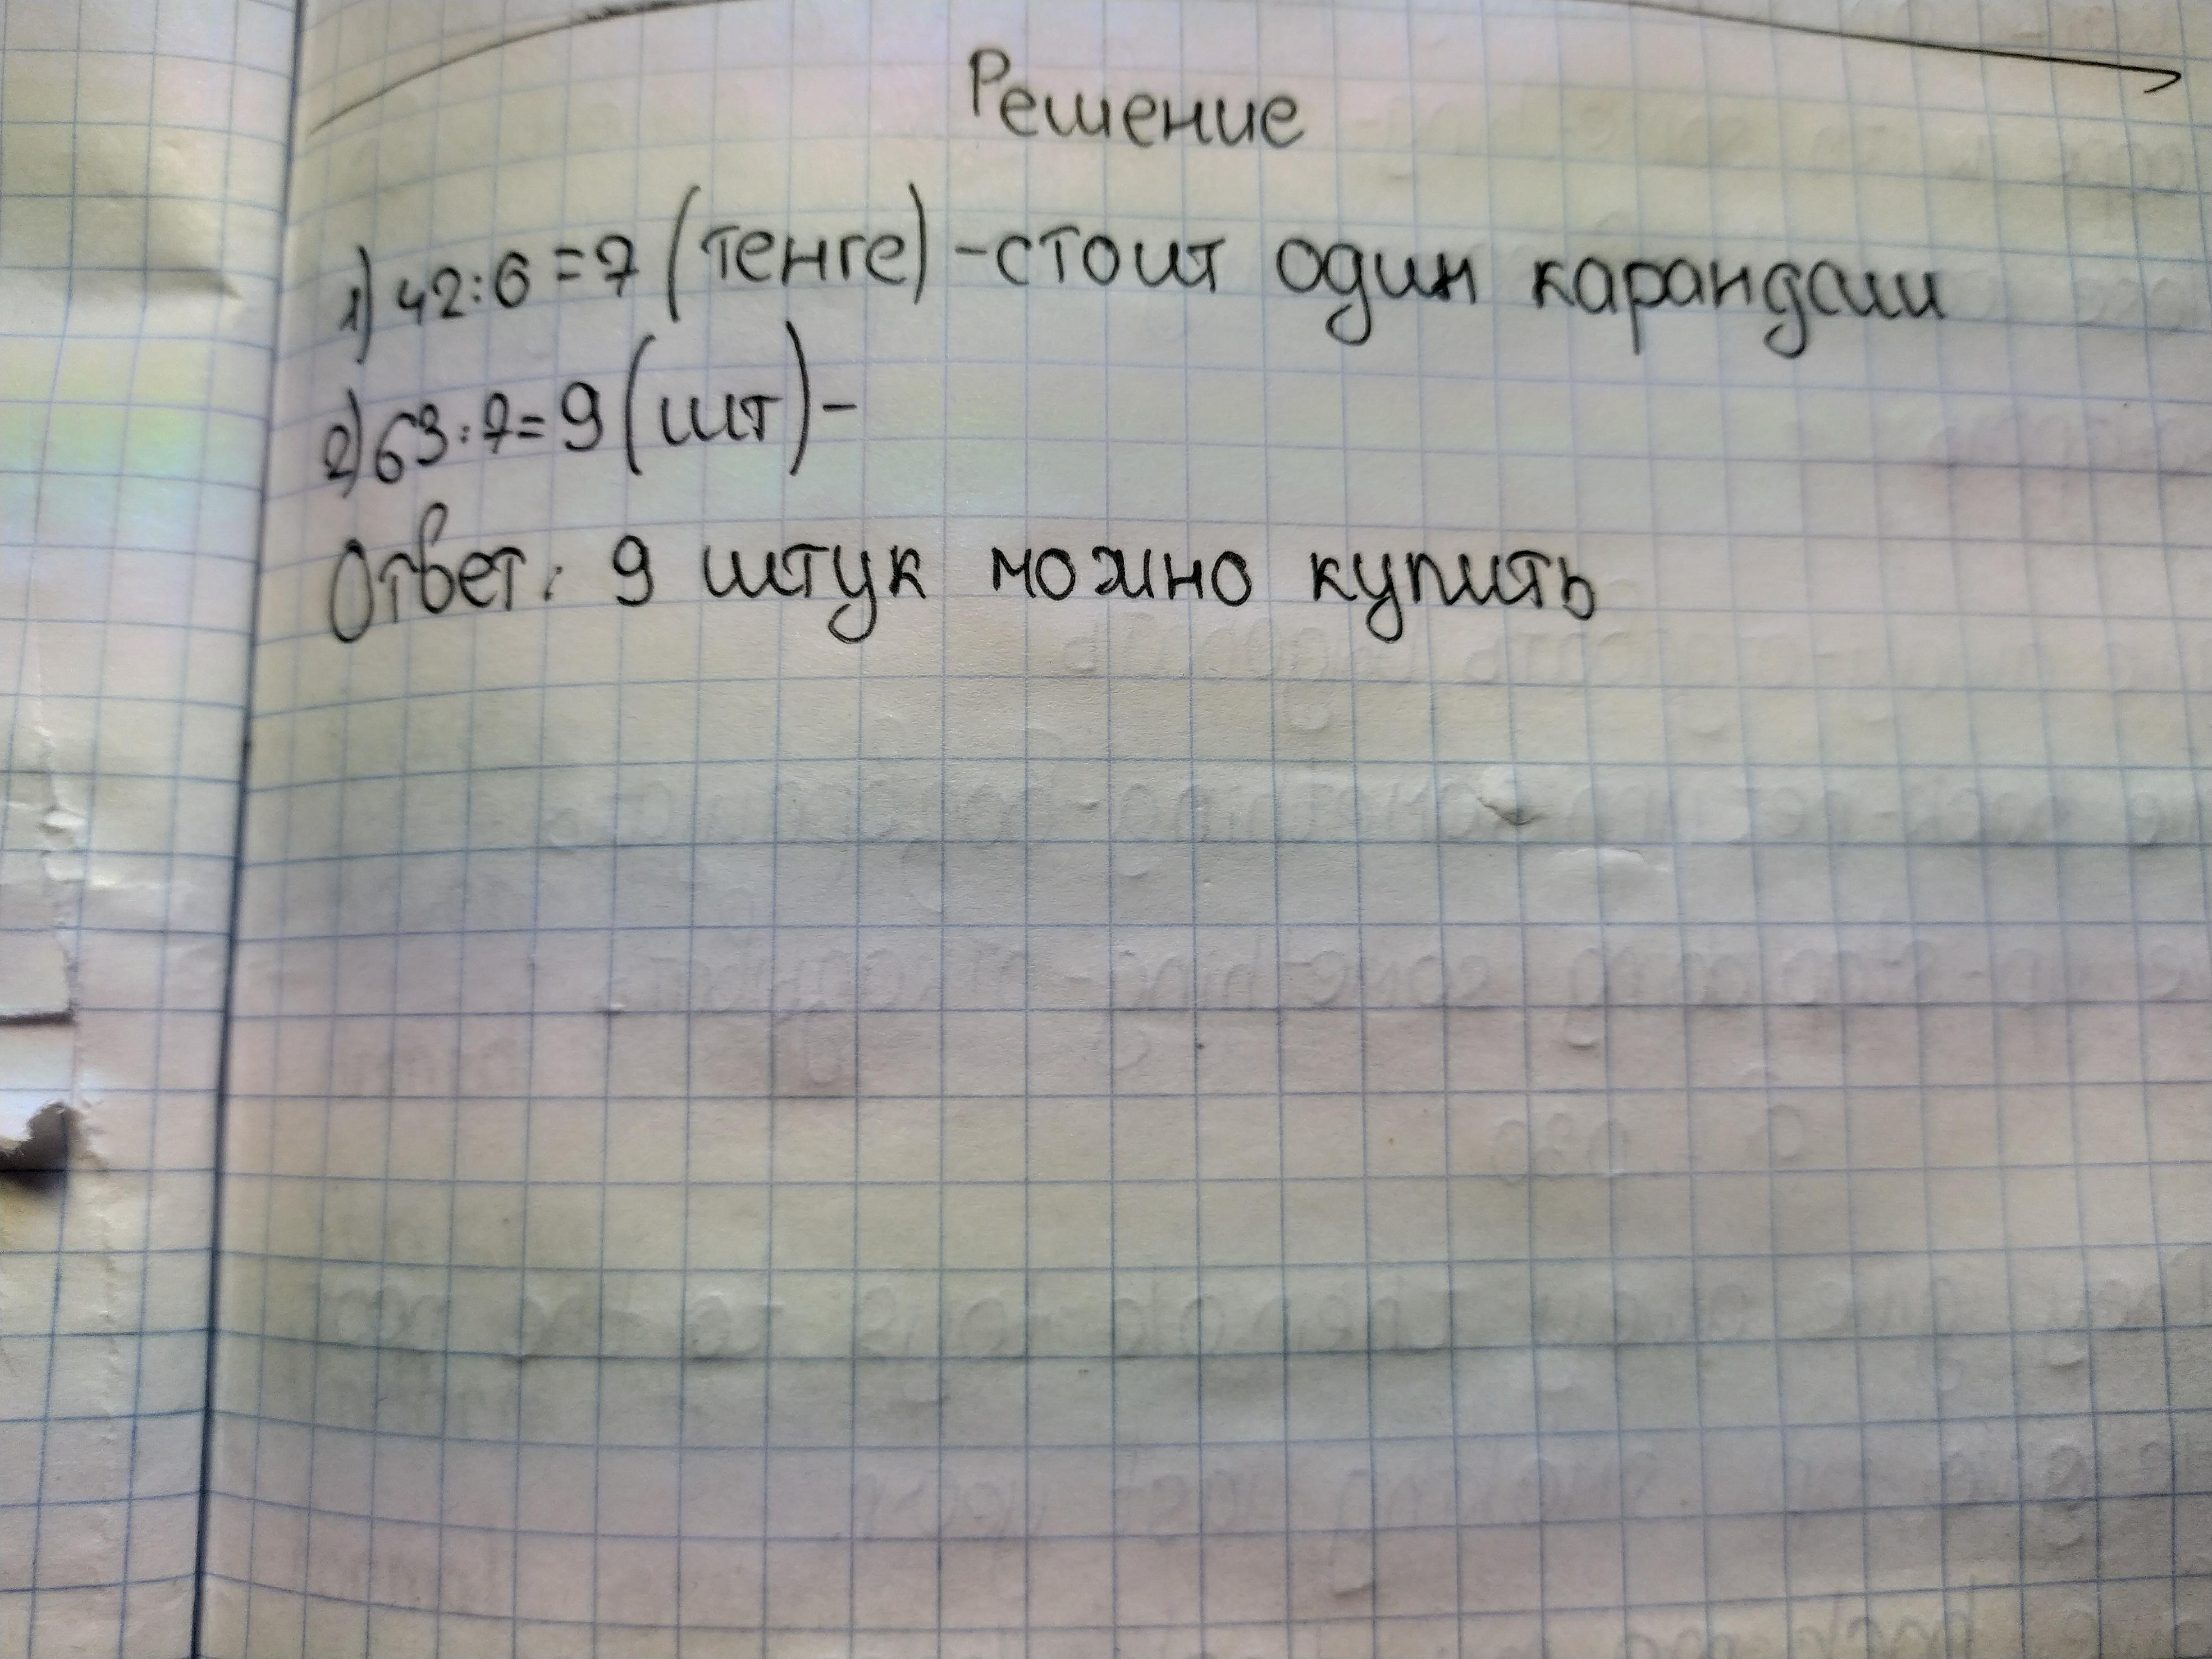 Решение
1) 42:6=7 (тенге) - стоит один карандаш
2) 63:7=9 (шт) -
Ответ: 9 штук можно купить